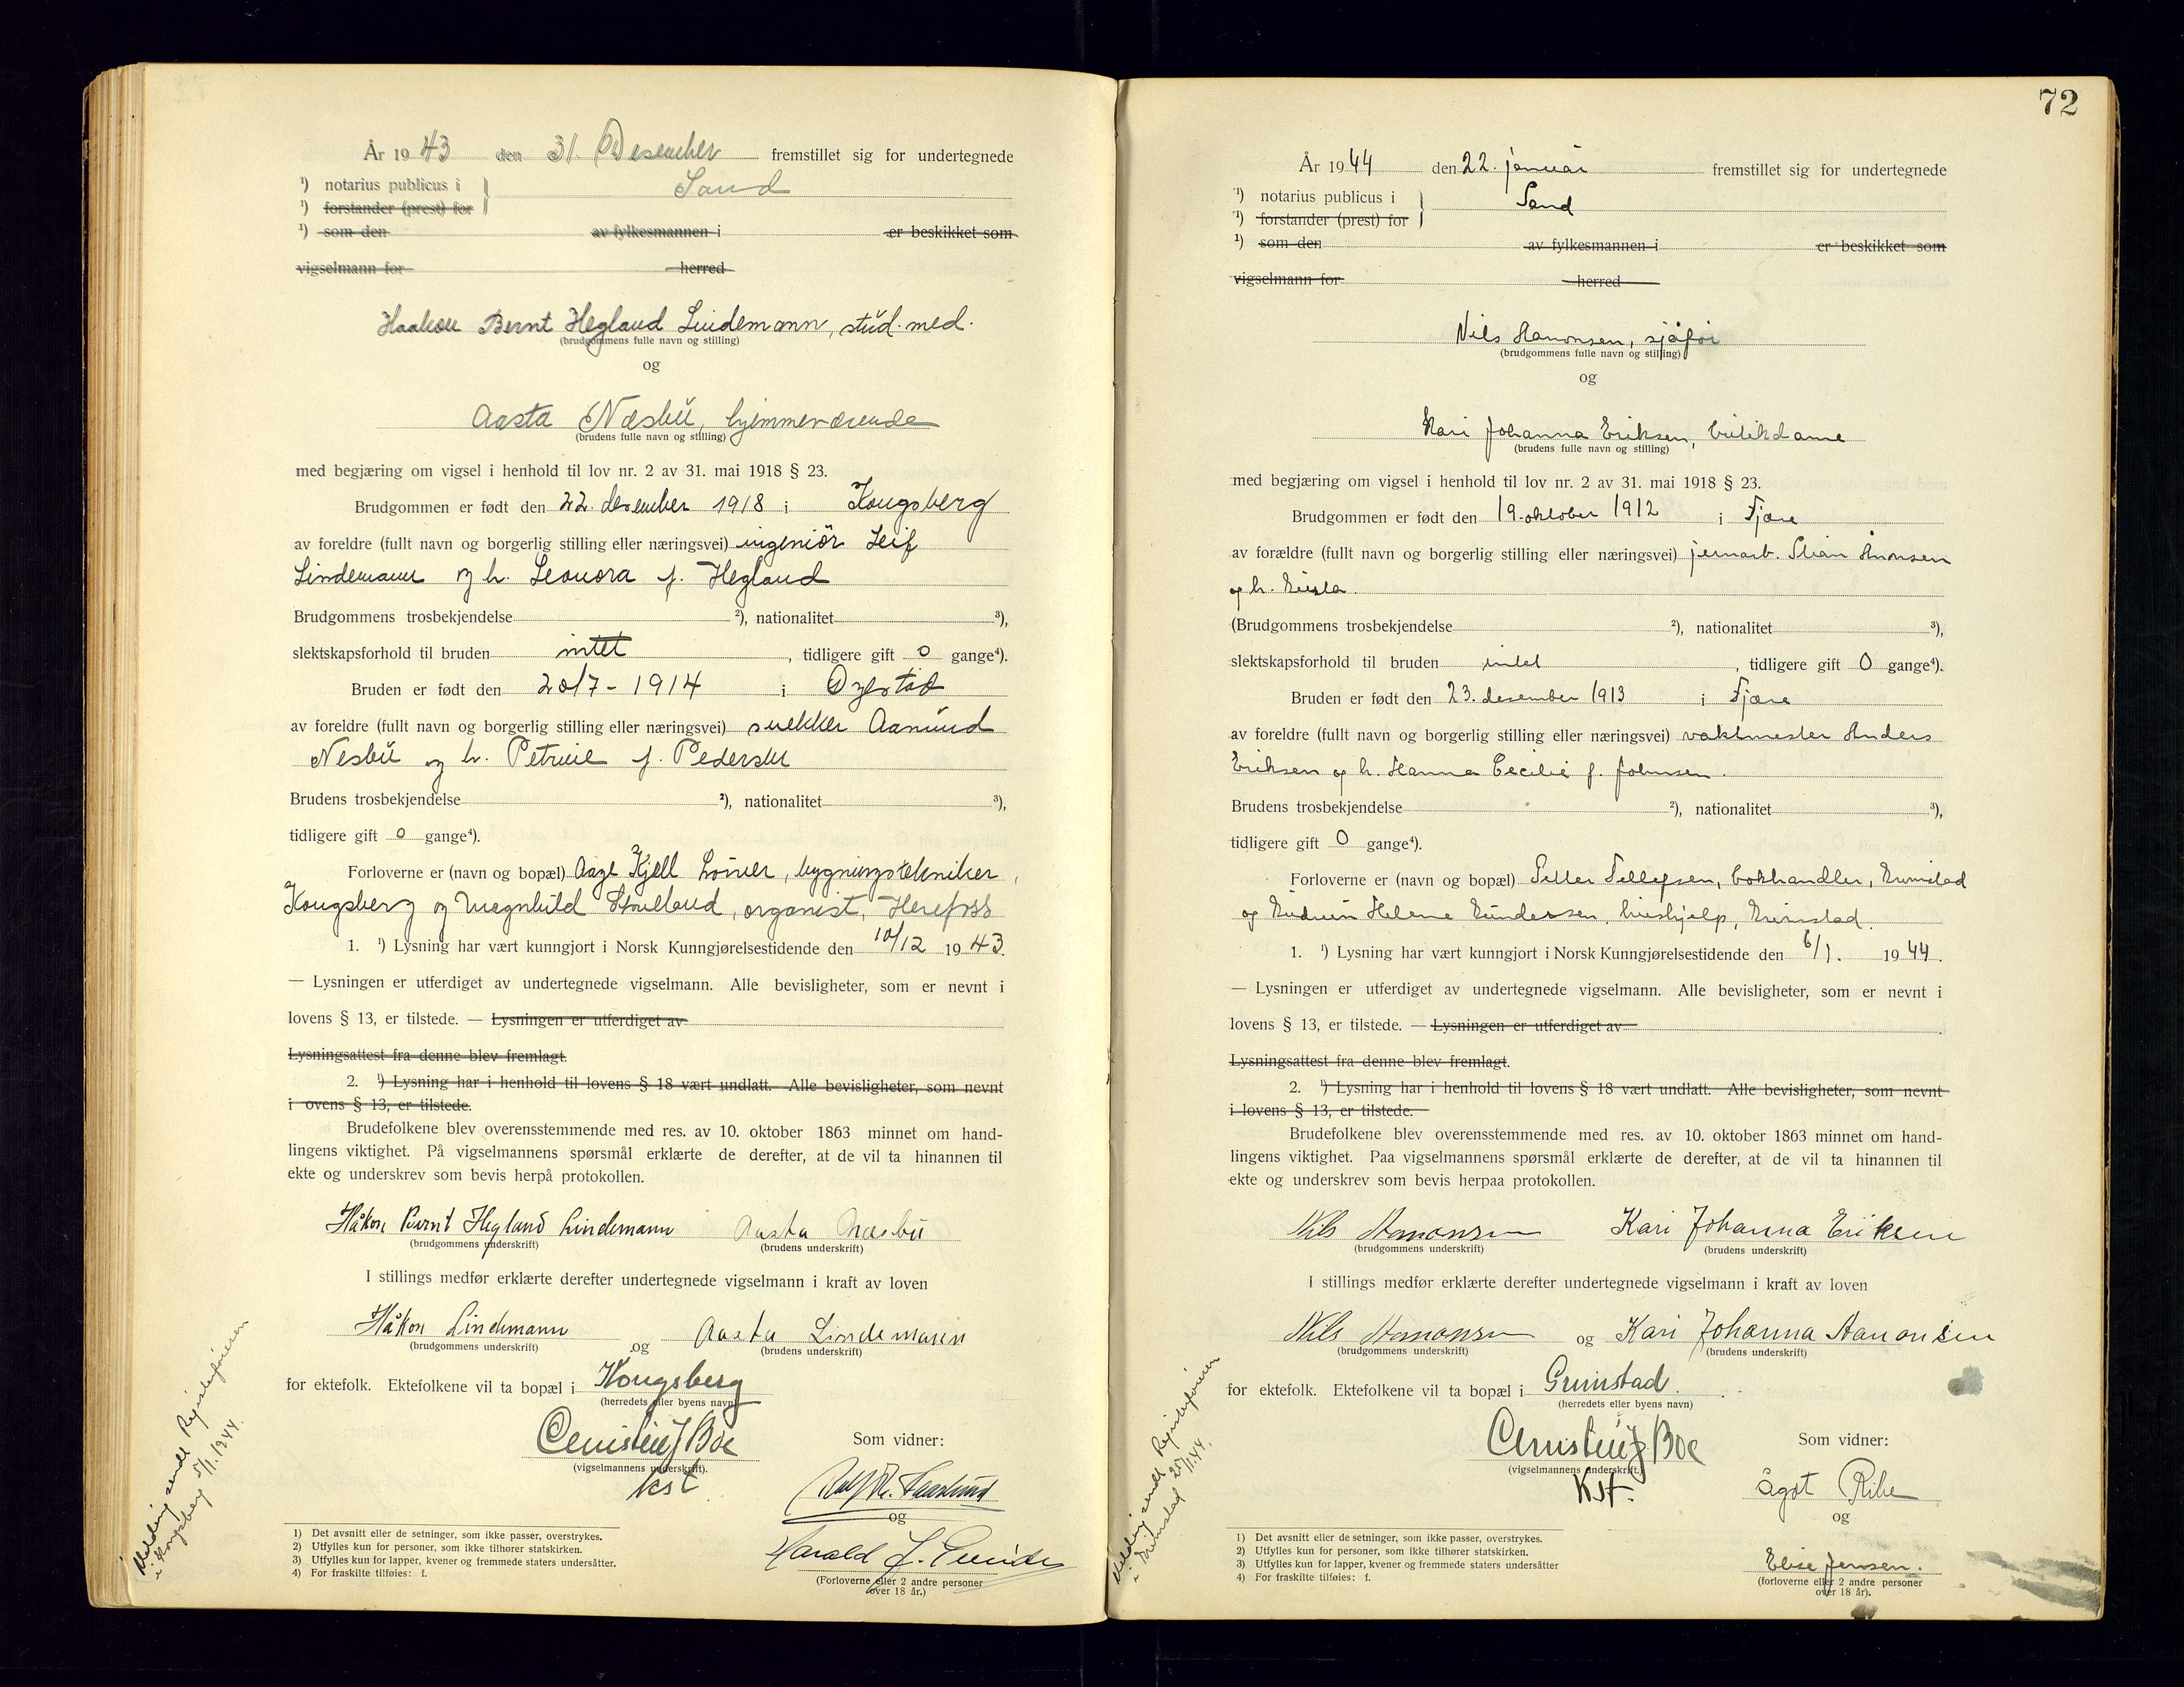 År 1943 den 31. Desember fremstillet sig for undertegnede
¹) notarius publicus i Sand
¹) forstander (prest) for
¹) som den av fylkesmannen i er beskikket som
vigselmann for herred
Haakon Bernt Hegland Lindemann, stud. med.
(brudgommens fulle navn og stilling)
og
Aasta Næsbu, hjemmeværende
(brudens fulle navn og stilling)
med begjæring om vigsel i henhold til lov nr. 2 av 31. mai 1918 § 23.
Brudgommen er født den 22. desember 1918 i Kongsberg
av foreldre (fullt navn og borgerlig stilling eller næringsvei) ingeniör Leif
Lindemann og h. Leonora f. Hegland
Brudgommens trosbekjendelse ²), nationalitet ³),
slektskapsforhold til bruden intet, tidligere gift 0 gange⁴).
Bruden er født den 20/7-1914 i Øyestad
av foreldre (fullt navn og borgerlig stilling eller næringsvei) snekker Aamund
Nesbu og h. Petrine f. Pedersen
Brudens trosbekjendelse ²), nationalitet ³),
tidligere gift 0 gange⁴).
Forloverne er (navn og bopæl) Aage Kjell bygningstekniker,
Kongsberg og Magnhild organist, Herefoss
1. ¹) Lysning har vært kunngjort i Norsk Kunngjørelsestidende den 10/12 1943.
— Lysningen er utferdiget av undertegnede vigselmann. Alle bevisligheter, som er nevnt i
lovens § 13, er tilstede. — Lysningen er utferdiget av
Lysningsattest fra denne blev fremlagt.
2. ¹) Lysning har i henhold til lovens § 18 vært undlatt. Alle bevisligheter, som nevnt
i ovens § 13, er tilstede.
Brudefolkene blev overensstemmende med res. av 10. oktober 1863 minnet om hand-
lingens viktighet. På vigselmannens spørsmål erklærte de derefter, at de vil ta hinannen til
ekte og underskrev som bevis herpå protokollen.
Håkon Bernt Hegland Lindemann Aasta Næsbu
(brudgommens underskrift) (brudens underskrift)
I stillings medfør erklærte derefter undertegnede vigselmann i kraft av loven
Håkon Lindemann og Aasta Lindemann
(brudgommens underskrift) (brudens underskrift)
for ektefolk. Ektefolkene vil ta bopæl i Kongsberg
(herredets eller byens navn)
Boe Som vidner:
(vigselmannens underskrift).
kst
og
Harald J.
(Forloverne eller 2 andre personer
over 18 år.)
1) Det avsnitt eller de setninger, som ikke passer, overstrykes.
2) Utfylles kun for personer, som ikke tilhører statskirken.
3) Utfylles kun for lapper, kvener og fremmede staters undersåtter.
4) For fraskilte tilføies: f.
Melding sendt Registerføreren
i Kongsberg 5/1. 1944.
72
År 1944 den 22. januar fremstillet sig for undertegnede
¹) notarius publicus i Sand
¹) forstander (prest) for
¹) som den av fylkesmannen i er beskikket som
vigselmann for herred
Nils Aanonsen, sjåför
(brudgommens fulle navn og stilling)
og
Kari Johanna Eriksen, butikdame
(brudens fulle navn og stilling)
med begjæring om vigsel i henhold til lov nr. 2 av 31. mai 1918 § 23.
Brudgommen er født den 19. oktober 1912 i Fjære
av forældre (fullt navn og borgerlig stilling eller næringsvei) jernarb. Stian Aanonsen
og h.
(Brudgommens trosbekjendelse ²), nationalitet ³),
slektskapsforhold til bruden intet, tidligere gift 0 gange⁴).
Bruden er født den 23. desember 1913 i Fjære
av foreldre (fullt navn og borgerlig stilling eller næringsvei) vaktmester Anders
Eriksen og h. Hanna Cecilie f. Johnsen.
Brudens trosbekjendelse ²), nationalitet ³),
tidligere gift 0 gange⁴).
Forloverne er (navn og bopæl) Tellef Tellefsen, bokhandler, Grimstad
og Gudrun Helene Gundersen, hushjelp, Grimstad.
1. ¹) Lysning har vært kunngjort i Norsk Kunngjørelsestidende den 6/1. 1944.
— Lysningen er utferdiget av undertegnede vigselmann. Alle bevisligheter, som er nevnt i
lovens § 13, er tilstede. — Lysningen er utferdiget av
Lysningsattest fra denne blev fremlagt.
2. ¹) Lysning har i henhold til lovens § 18 vært undlatt. Alle bevisligheter, som nevnt
i lovens § 13, er tilstede.
Brudefolkene blev overensstemmende med res. av 10. oktober 1863 minnet om hand-
lingens viktighet. Paa vigselmannens spørsmål erklærte de derefter, at de vil ta hinannen til
ekte og underskrev som bevis herpaa protokollen.
Nils Aanonsen Kari Johanna Eriksen
(brudgommens underskrift) (brudens underskrift)
I stillings medfør erklærte derefter undertegnede vigselmann i kraft av loven
Nils Aanonsen og Kari Johanna Aanonsen
(brudgommens underskrift) (brudens underskrift)
for ektefolk. Ektefolkene vil ta bopæl i Grimstad.
(herredets eller byens navn)
Boe Som vidner:
(vigselmannens underskrift.)
Kst. Ågot Ribe
og
Elise Jensen.
(forloverne eller 2 andre personer
over 18 år).
1) Det avsnitt eller de setninger, som ikke passer, overstrykes.
2) Utfylles kun for personer, som ikke tilhører statskirken.
3) Utfylles kun for lapper, kvener og fremmede staters undersåtter
4) For fraskilte tilføies: f.
Melding sendt Registerføreren
i Grimstad 25/1. 44.